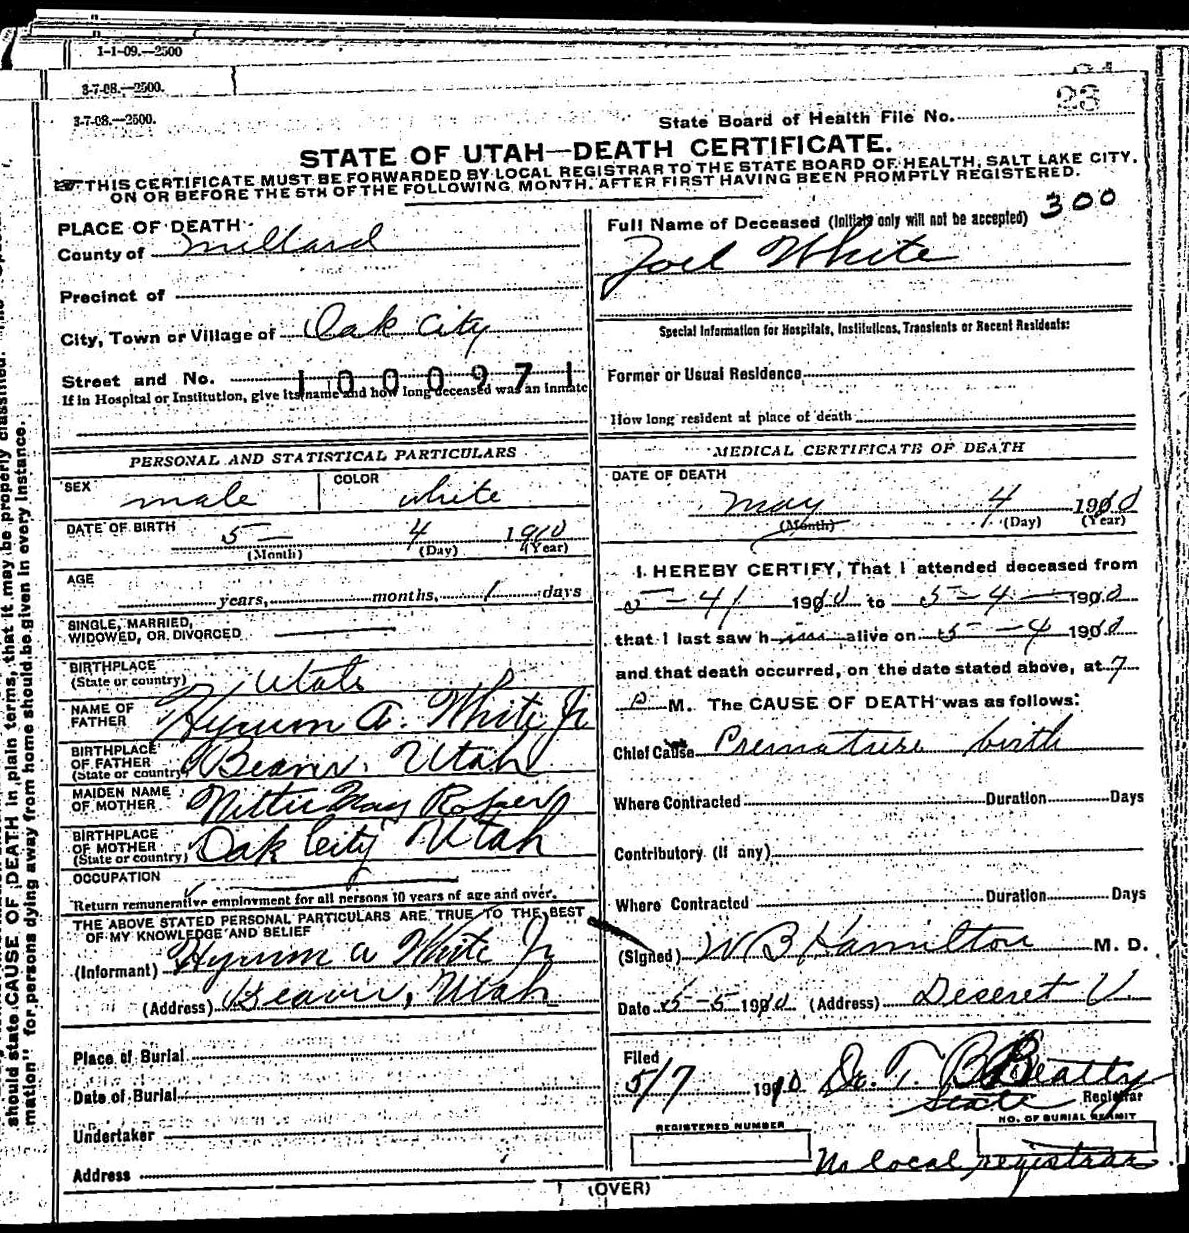 1-1-09.—2500
3-7-08.—2500.
3-7-08.—2500.
State Board of Health File No. 23
STATE OF UTAH—DEATH CERTIFICATE.
THIS CERTIFICATE MUST BE FORWARDED BY LOCAL REGISTRAR TO THE STATE BOARD OF HEALTH, SALT LAKE CITY,
ON OR BEFORE THE 5TH OF THE FOLLOWING MONTH, AFTER FIRST HAVING BEEN PROMPTLY REGISTERED.
PLACE OF DEATH
County of Millard
Precinct of
City, Town or Village of Oak City
Street and No. 1000971
If in Hospital or Institution, give its name and how long deceased was an inmate
PERSONAL AND STATISTICAL PARTICULARS
SEX male COLOR white
DATE OF BIRTH 5 — 4 1910
(Month) (Day) (Year)
AGE
years, months, 1 days
SINGLE, MARRIED,
WIDOWED, OR DIVORCED
BIRTHPLACE
(State or country) Utah
NAME OF
FATHER Hyrum A. White Jr
BIRTHPLACE
OF FATHER
(State or country) Beaver, Utah
MAIDEN NAME
OF MOTHER May Roper
BIRTHPLACE
OF MOTHER
(State or country) Oak City Utah
OCCUPATION
Return remunerative employment for all persons 10 years of age and over.
THE ABOVE STATED PERSONAL PARTICULARS ARE TRUE TO THE BEST
OF MY KNOWLEDGE AND BELIEF
(Informant) Hyrum A White Jr
(Address) Beaver, Utah
Place of Burial
Date of Burial
Undertaker
Address
300
Full Name of Deceased (Initials only will not be accepted)
Joel White
Special Information for Hospitals, Institutions, Transients or Recent Residents:
Former or Usual Residence
How long resident at place of death
MEDICAL CERTIFICATE OF DEATH
DATE OF DEATH
May 4 1910
(Month) (Day) (Year)
I HEREBY CERTIFY, That I attended deceased from
5-4 1910 to 5-4 1910
that I last saw him alive on 5-4 1910
and that death occurred, on the date stated above, at 7
P M. The CAUSE OF DEATH was as follows:
Chief Cause Premature birth
Where Contracted Duration Days
Contributory (if any)
Where Contracted Duration Days
(Signed) W B Hamilton M. D.
Date 5-5 1910 (Address) Deseret U.
Filed
5/7 1910 Dr. T. B. Beatty
State Registrar
REGISTERED NUMBER NO. OF BURIAL PERMIT
No local registrar
(OVER)
should state CAUSE OF DEATH in plain terms, that it may be properly classified.
mation" for persons dying away from home should be given in every instance.